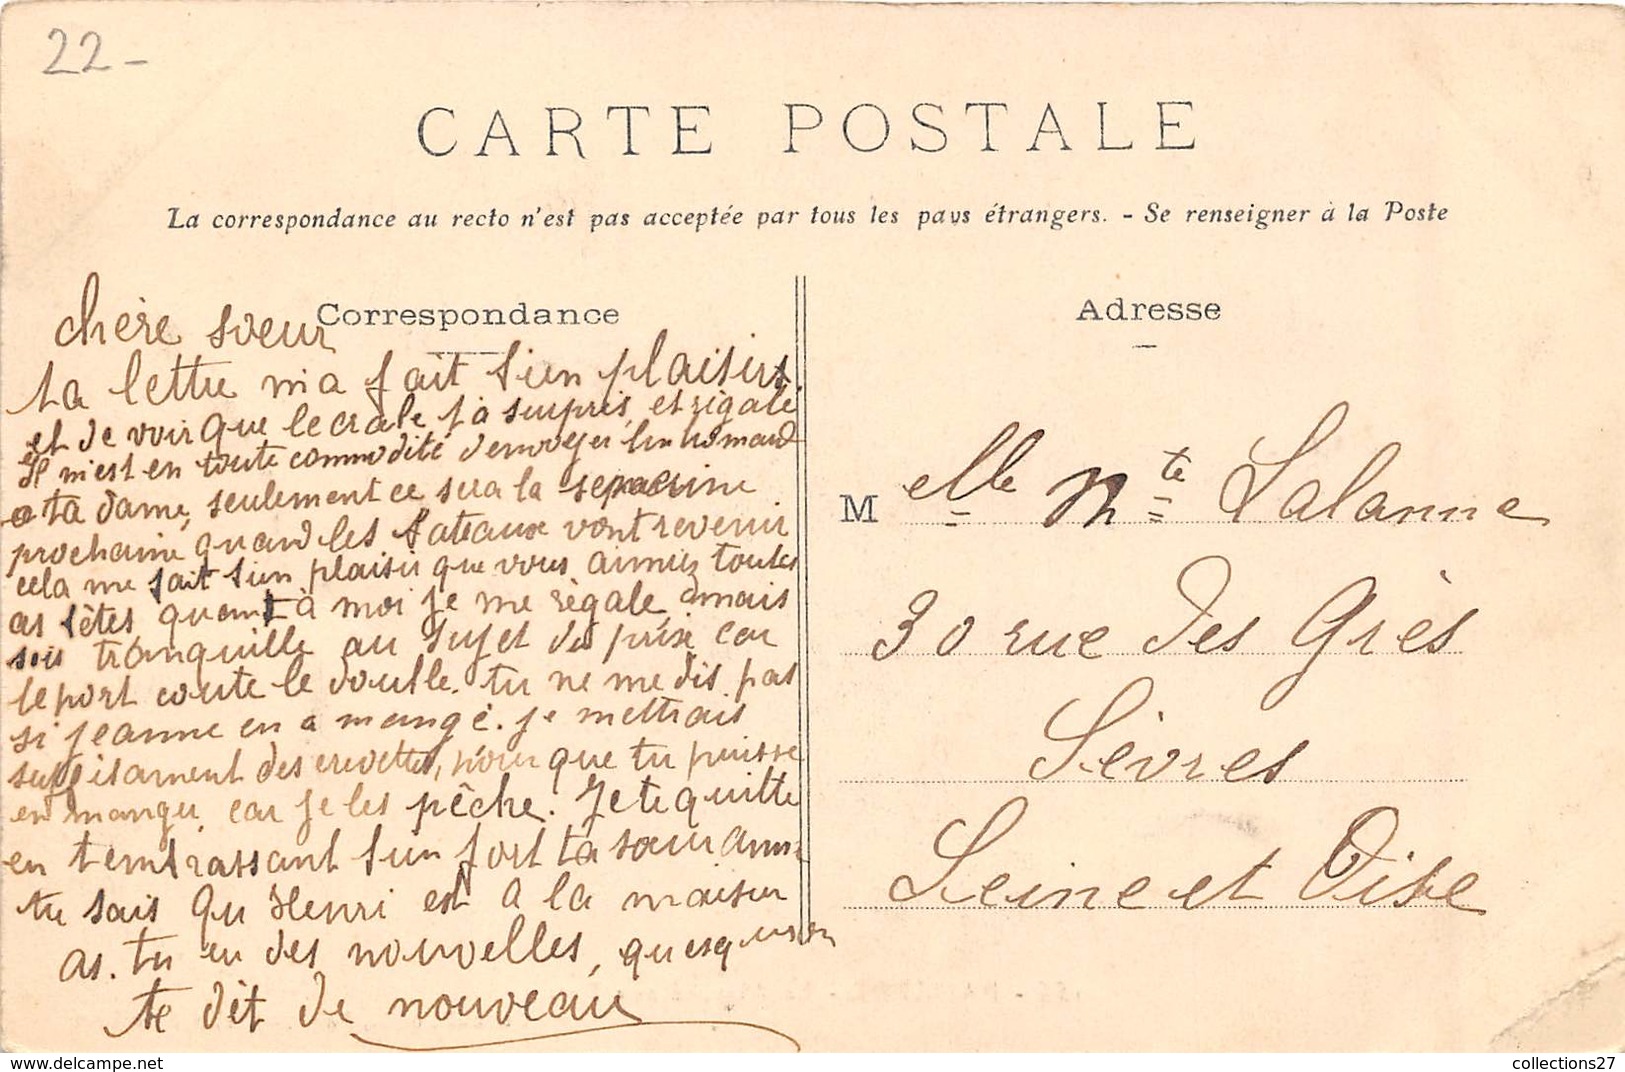 22-
CARTE POSTALE
La correspondance au recto n'est pas acceptée par tous les pays étrangers. - Se renseigner à la Poste
Correspondance
chère soeur
ta lettre m'a fait bien plaisir
et de voir que le crabe t'a surpris et régalé
Il m'est en toute commodité d'envoyer un homard
a ta dame, seulement ce sera la semaine
prochaine quand les bateaux vont revenir
cela me fait bien plaisir que vous aimiez toutes
as bêtes quant à moi je me règale mais
sois tranquille au sujet du prix car
le port coute le double. tu ne me dis pas
si jeanne en a mangé. je mettrais
des crevettes, pour que tu puisse
en manger car je les pêche. Je te quitte
en t'embrassant bien fort ta soeur Anna
tu sais qu Henri est a la maison
as. tu eu des nouvelles, quesqu'on
te dit de nouveau
Adresse
Melle Mte Lalanne
30 rue des Grès
Sèvres
Seine et Oise
collections27